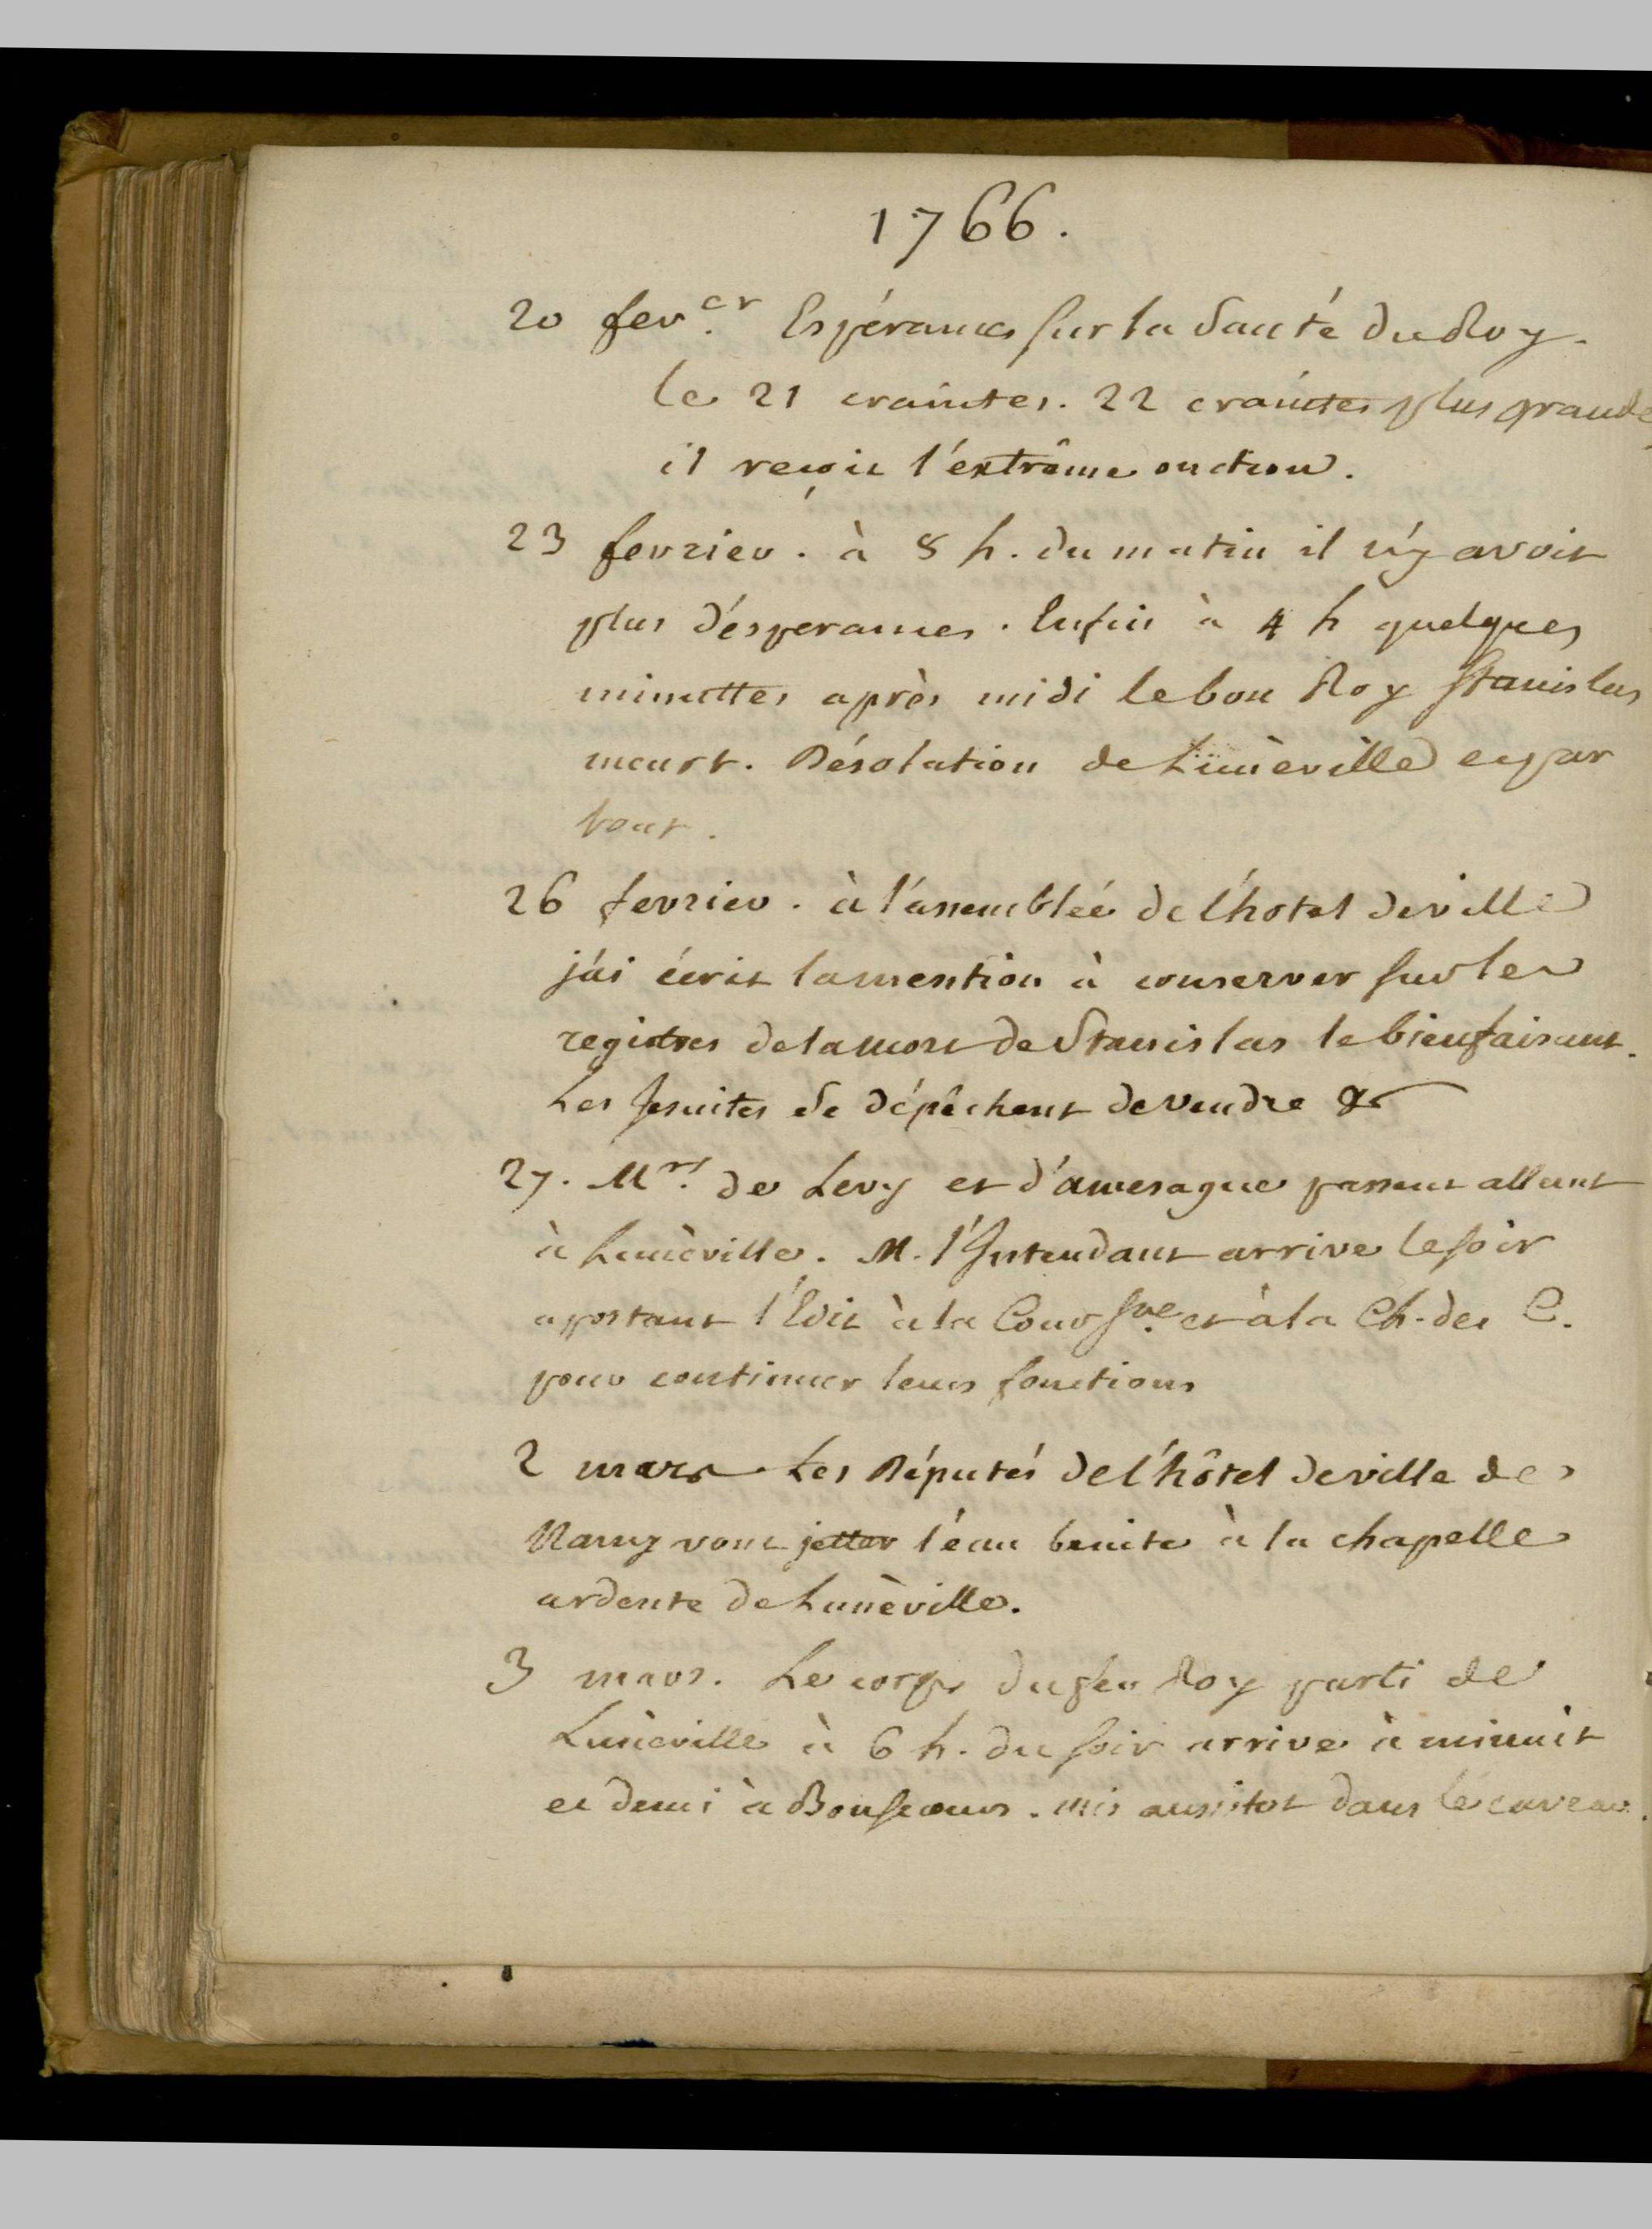 1766.
20 fev.er Espérances sur la Santé du Roy.
le 21 craintes. 22 craintes plus grande
il reçoit l'extrême onction.
23 fevrier. à 8 h. du matin il n'y avoit
plus d'ésperances. Enfin à 4 h quelques
minuttes après midi le bon Roy Stanislas
meurt. Désolation de Lunèville et par
tout.
26 fevrier. à l'assemblée de l'hotel de ville
j'ai écrit la mention à conserver sur les
registres de la mort de Stanislas le bienfaisant.
Les Jesuites se dépêchent de vendre &c
27. Mrs. de Levy et d'amesague passent allant
à Lunèville. M. l'Intendant arrive le soir
apostant l'Edit à la Cour Sve. et à la Ch. des C.
pour continuer leurs fonctions
2 mars Les Députés de l'hôtel de ville de
Nancy vont jetter l'éau benite à la chapelle
ardente de Lunèville.
3 mars. Le corps du feu Roy parti de
Lunèville à 6 h. du soir arrive à minuit
et demi à Bonsecours. mis aussitot dans le caveau.